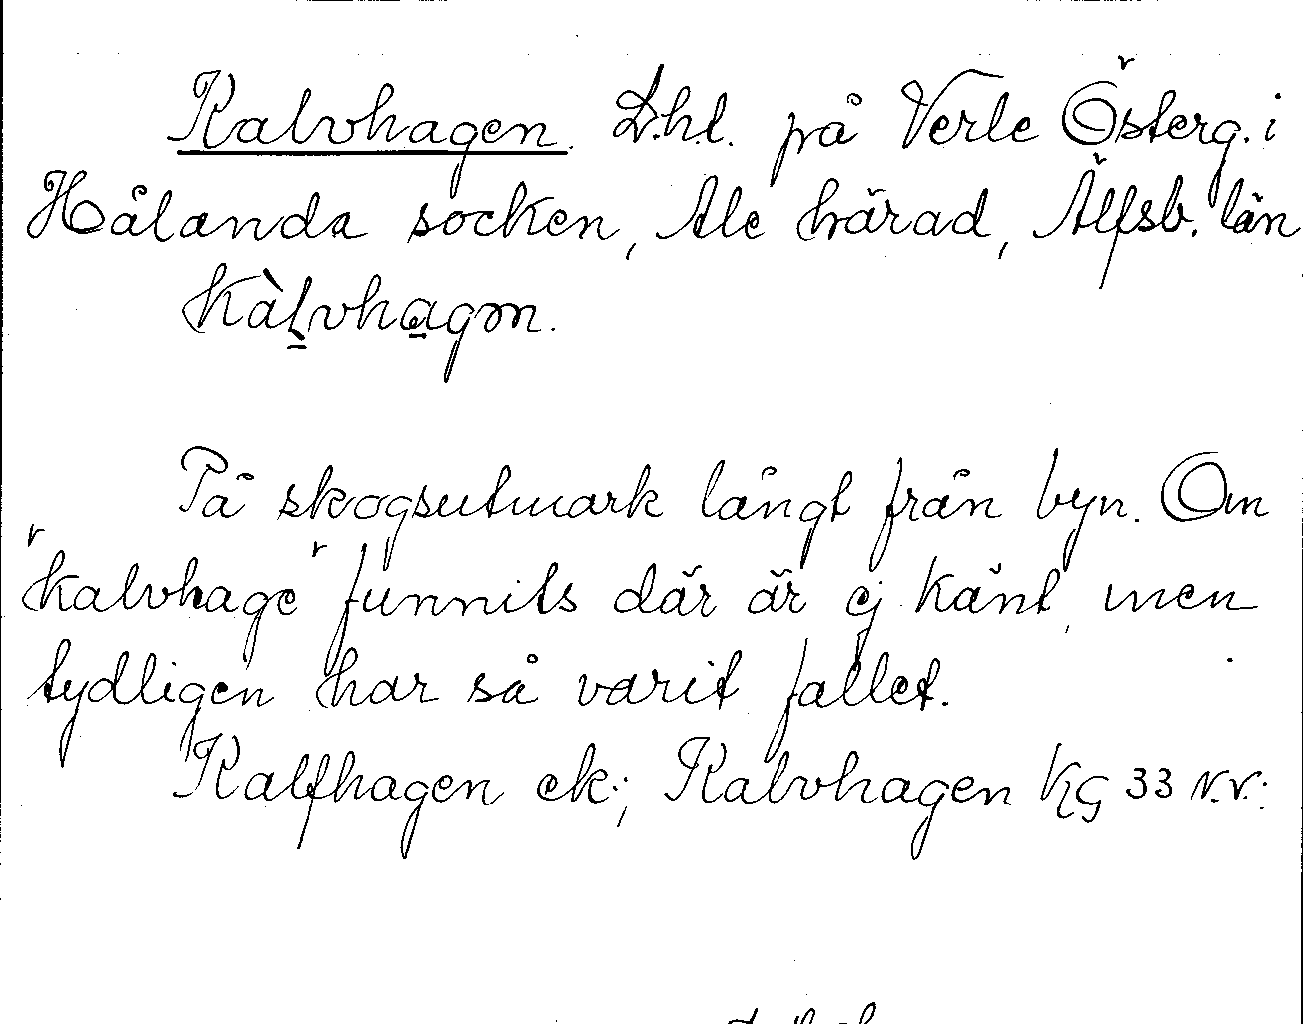 Kalvhagen. L.h.l. på Verle Österg. i
Hålanda socken, Ale härad, Älfsb. län
kàlvhagən.
På skogsutmark långt från byn. Om
"kalvhage" funnits där är ej känt, men
tydligen har så varit fallet.
Kalfhagen ek.; Kalvhagen KG 33 N.V.: